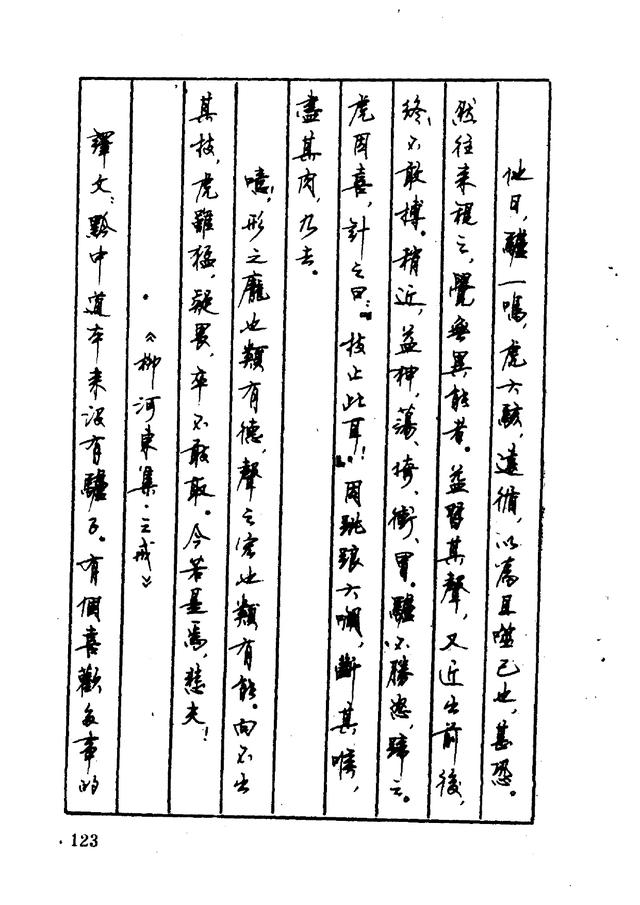 他日，驢一鳴，虎大駭，遠循，以為且噬己也，甚恐。
然往來視之，覺無異能者。益習其聲，又近出前後，
終不敢搏。稍近，益狎，蕩、倚、衝、冒。驢不勝怒，蹄之。
虎因喜，計之曰：“技止此耳！”因跳踉大㘎，斷其喉，
盡其肉，乃去。
噫！形之龐也類有德，聲之宏也類有能。向不出
其技，虎雖猛，疑畏，卒不敢取。今若是焉，悲夫！
·《柳河東集·三戒》
譯文：黔中道本來沒有驢子。有個喜歡多事的
·123